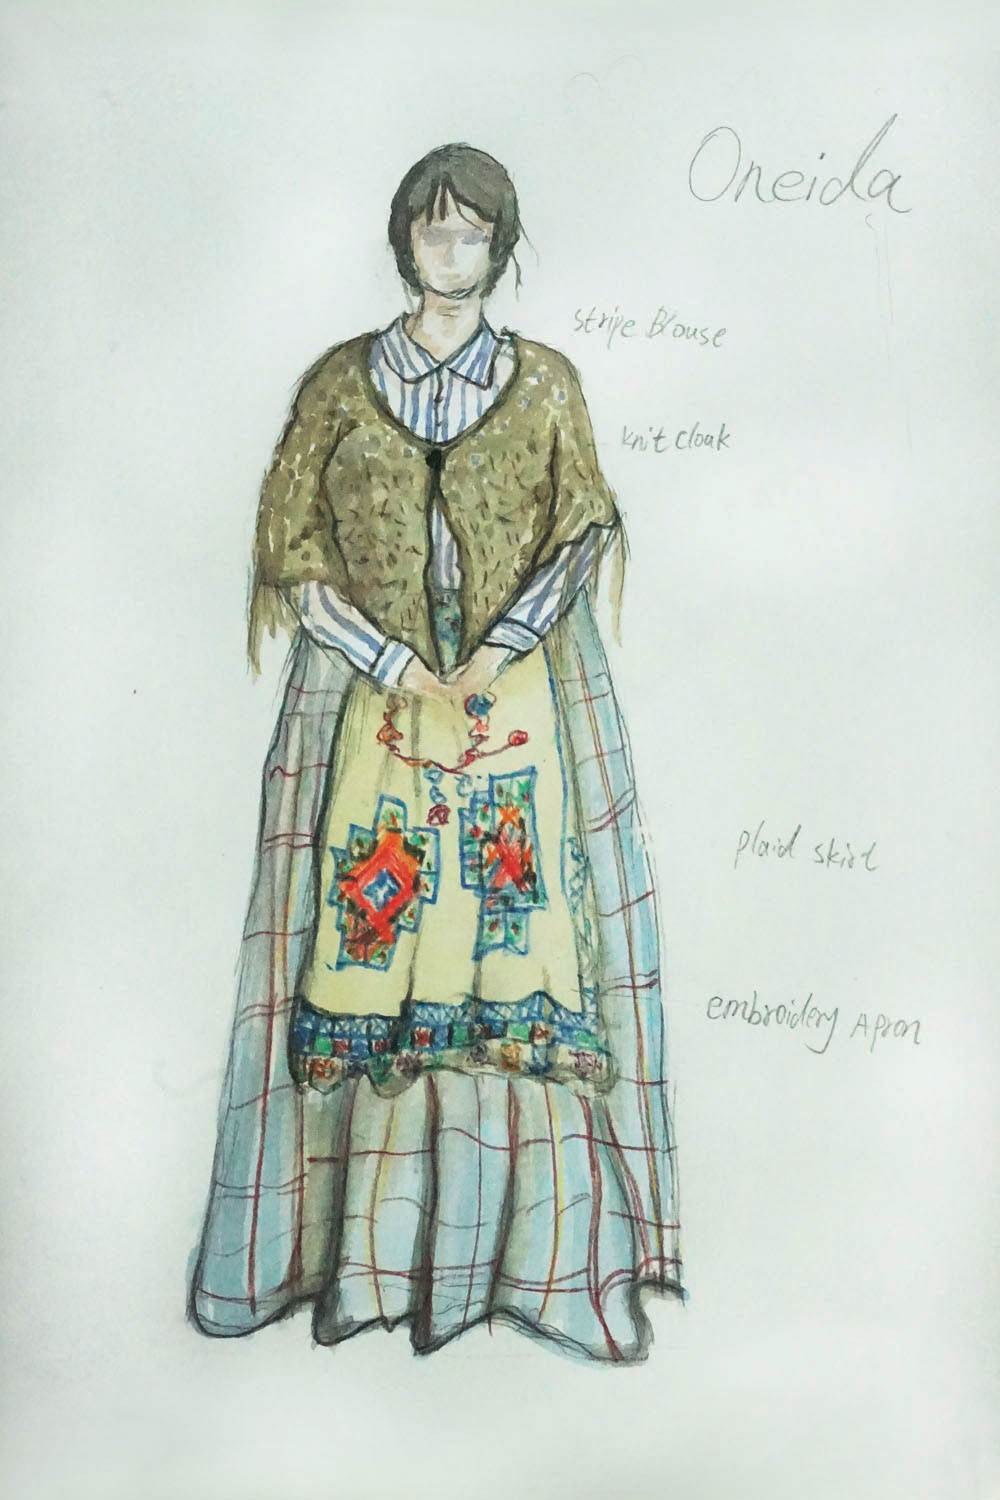 Oneida
stripe Blouse
knit cloak
plaid skirt
embroidery Apron